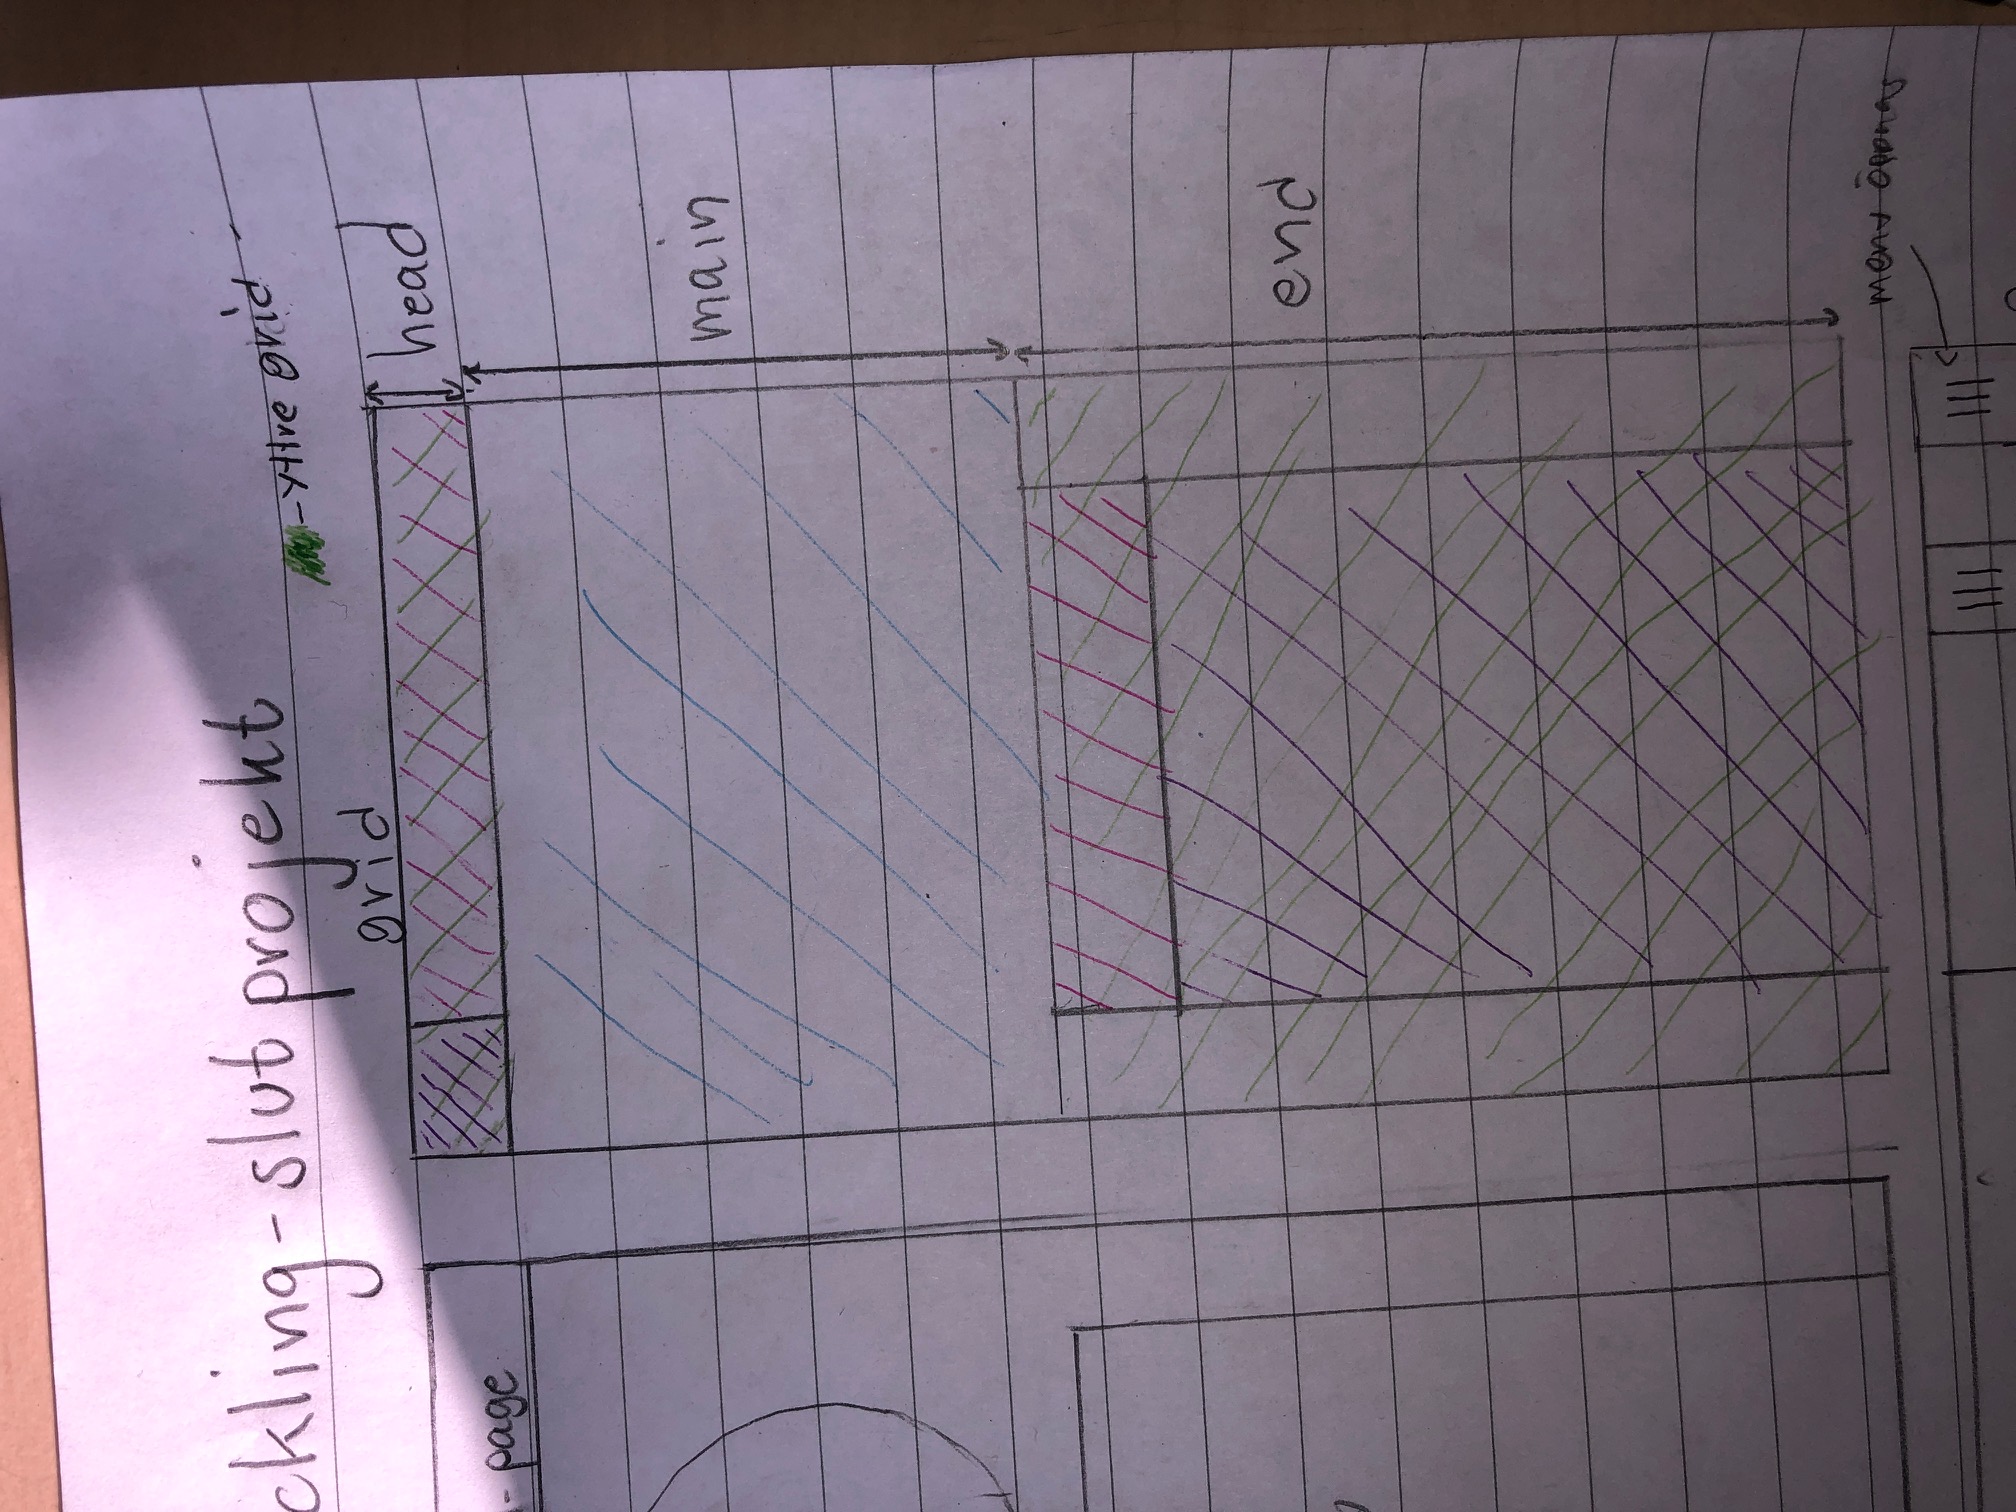 ckling-slut projekt
-yttre grid
grid
head
- page
main
end
meny öppnas